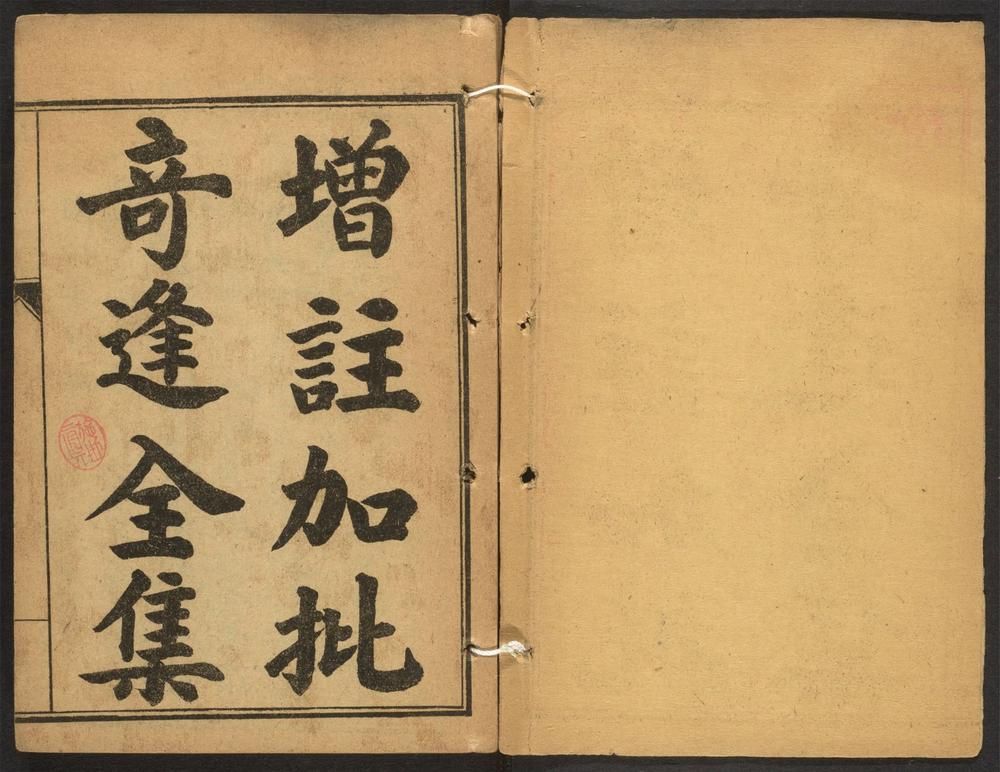 增註加批
竒逢全集